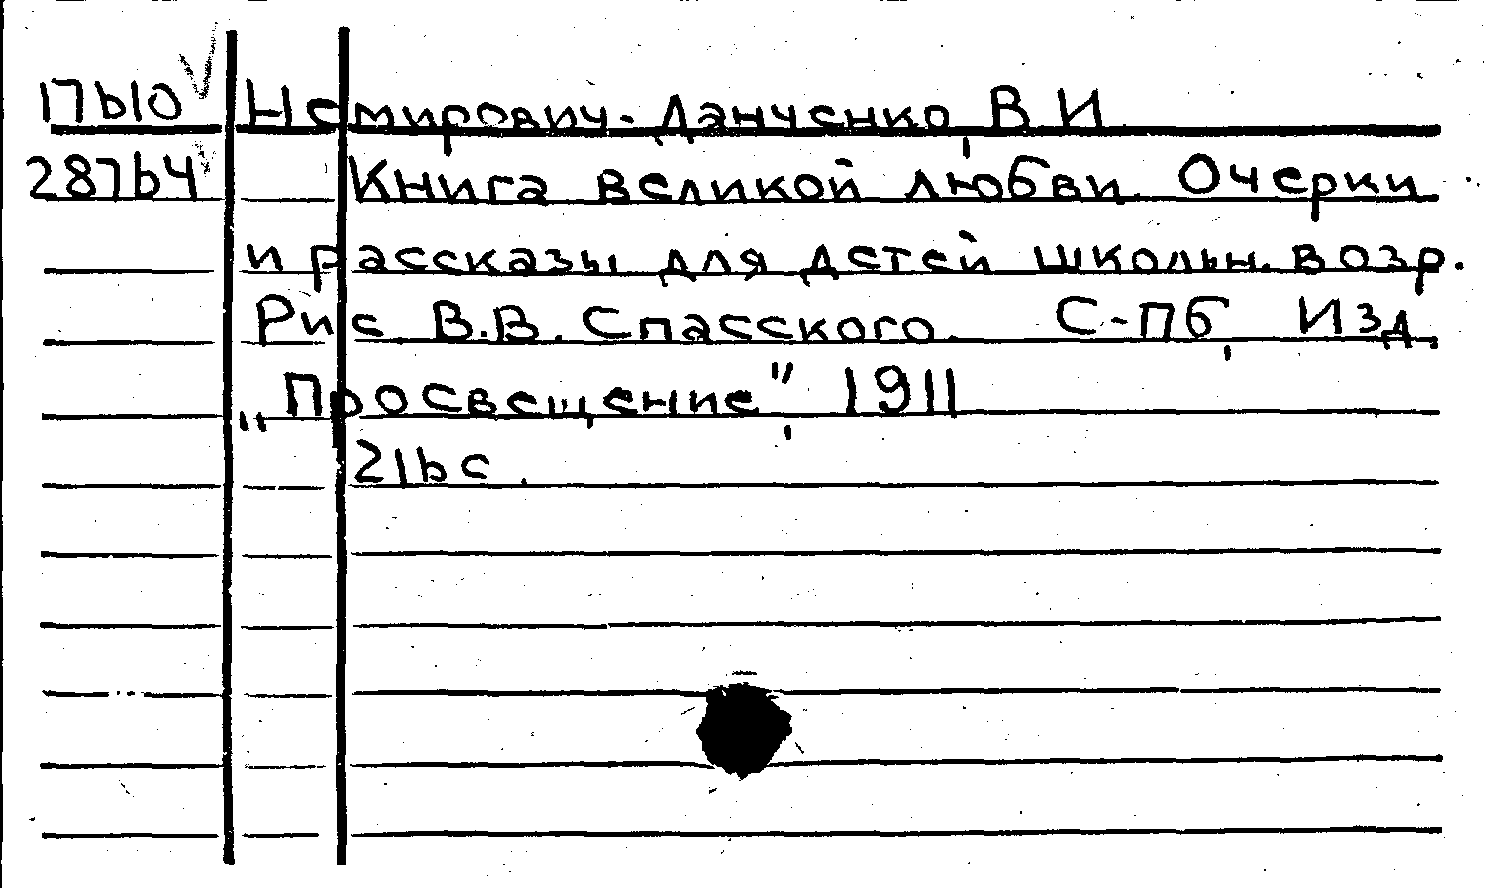 17610 Немирович-Данченко, В.И.
28764 Книга великой любви. Очерки
и рассказы для детей школьн. возр.
Рис. В.В. Спасского. С-Пб, Изд.
„Просвещение", 1911
216 с.